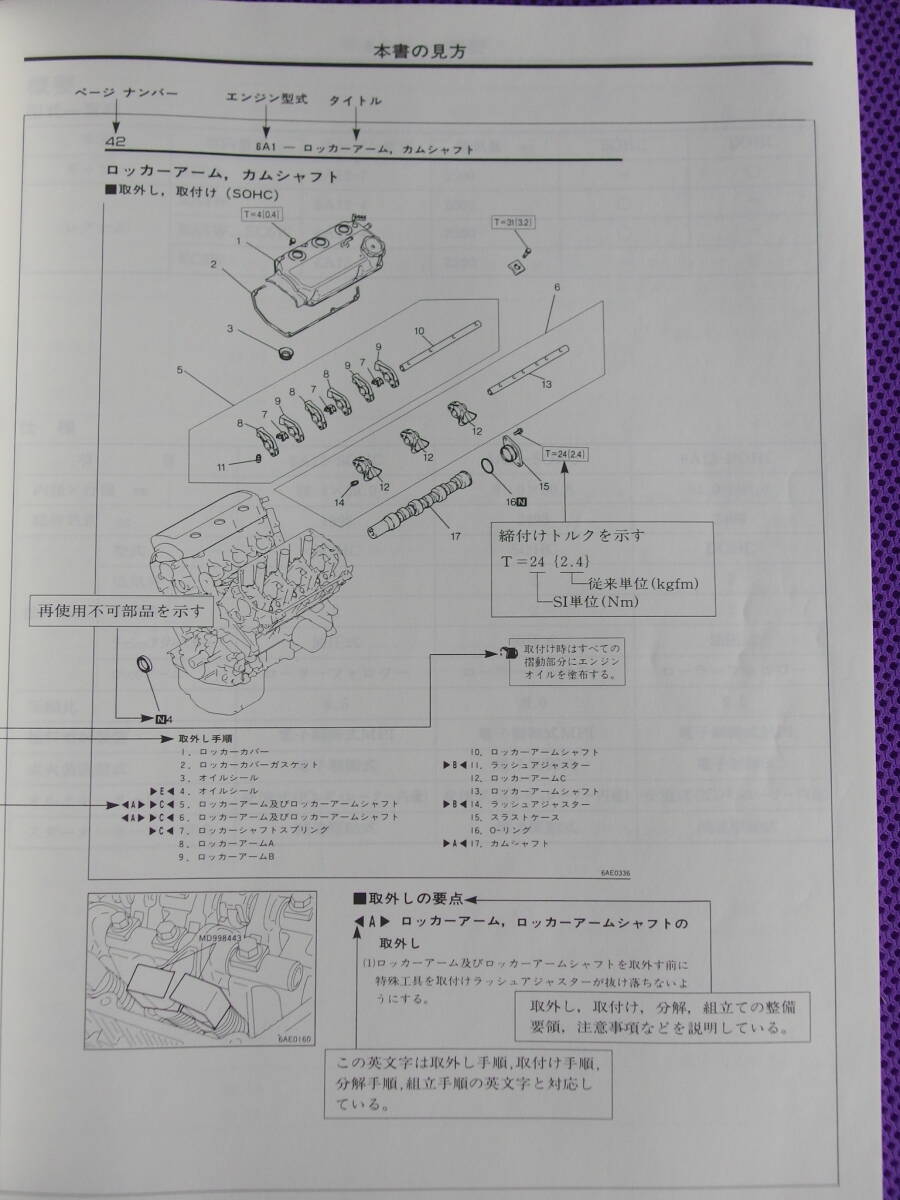 本書の見方
ページ ナンバー
エンジン型式
タイトル
42
6A1 — ロッカーアーム，カムシャフト
ロッカーアーム，カムシャフト
■取外し，取付け（SOHC）
T=4{0.4}
T=31{3.2}
1
2
3
5
6
10
9
7
8
9
7
8
9
7
8
11
13
12
12
12
14
T=24{2.4}
15
16N
17
締付けトルクを示す
T＝24 {2.4}
従来単位(kgfm)
SI単位(Nm)
再使用不可部品を示す
取付け時はすべての
摺動部分にエンジン
オイルを塗布する。
N4
取外し手順
1．ロッカーカバー
2．ロッカーカバーガスケット
3．オイルシール
▶E◀ 4．オイルシール
◀A▶ ▶C◀ 5．ロッカーアーム及びロッカーアームシャフト
◀A▶ ▶C◀ 6．ロッカーアーム及びロッカーアームシャフト
▶C◀ 7．ロッカーシャフトスプリング
8．ロッカーアームA
9．ロッカーアームB
10．ロッカーアームシャフト
▶B◀ 11．ラッシュアジャスター
12．ロッカーアームC
13．ロッカーアームシャフト
▶B◀ 14．ラッシュアジャスター
15．スラストケース
16．O-リング
▶A◀ 17．カムシャフト
6AE0336
MD998443
6AE0160
■取外しの要点
◀A▶ ロッカーアーム，ロッカーアームシャフトの
取外し
(1)ロッカーアーム及びロッカーアームシャフトを取外す前に
特殊工具を取付けラッシュアジャスターが抜け落ちないよ
うにする。
取外し，取付け，分解，組立ての整備
要領，注意事項などを説明している。
この英文字は取外し手順,取付け手順,
分解手順,組立手順の英文字と対応し
ている。